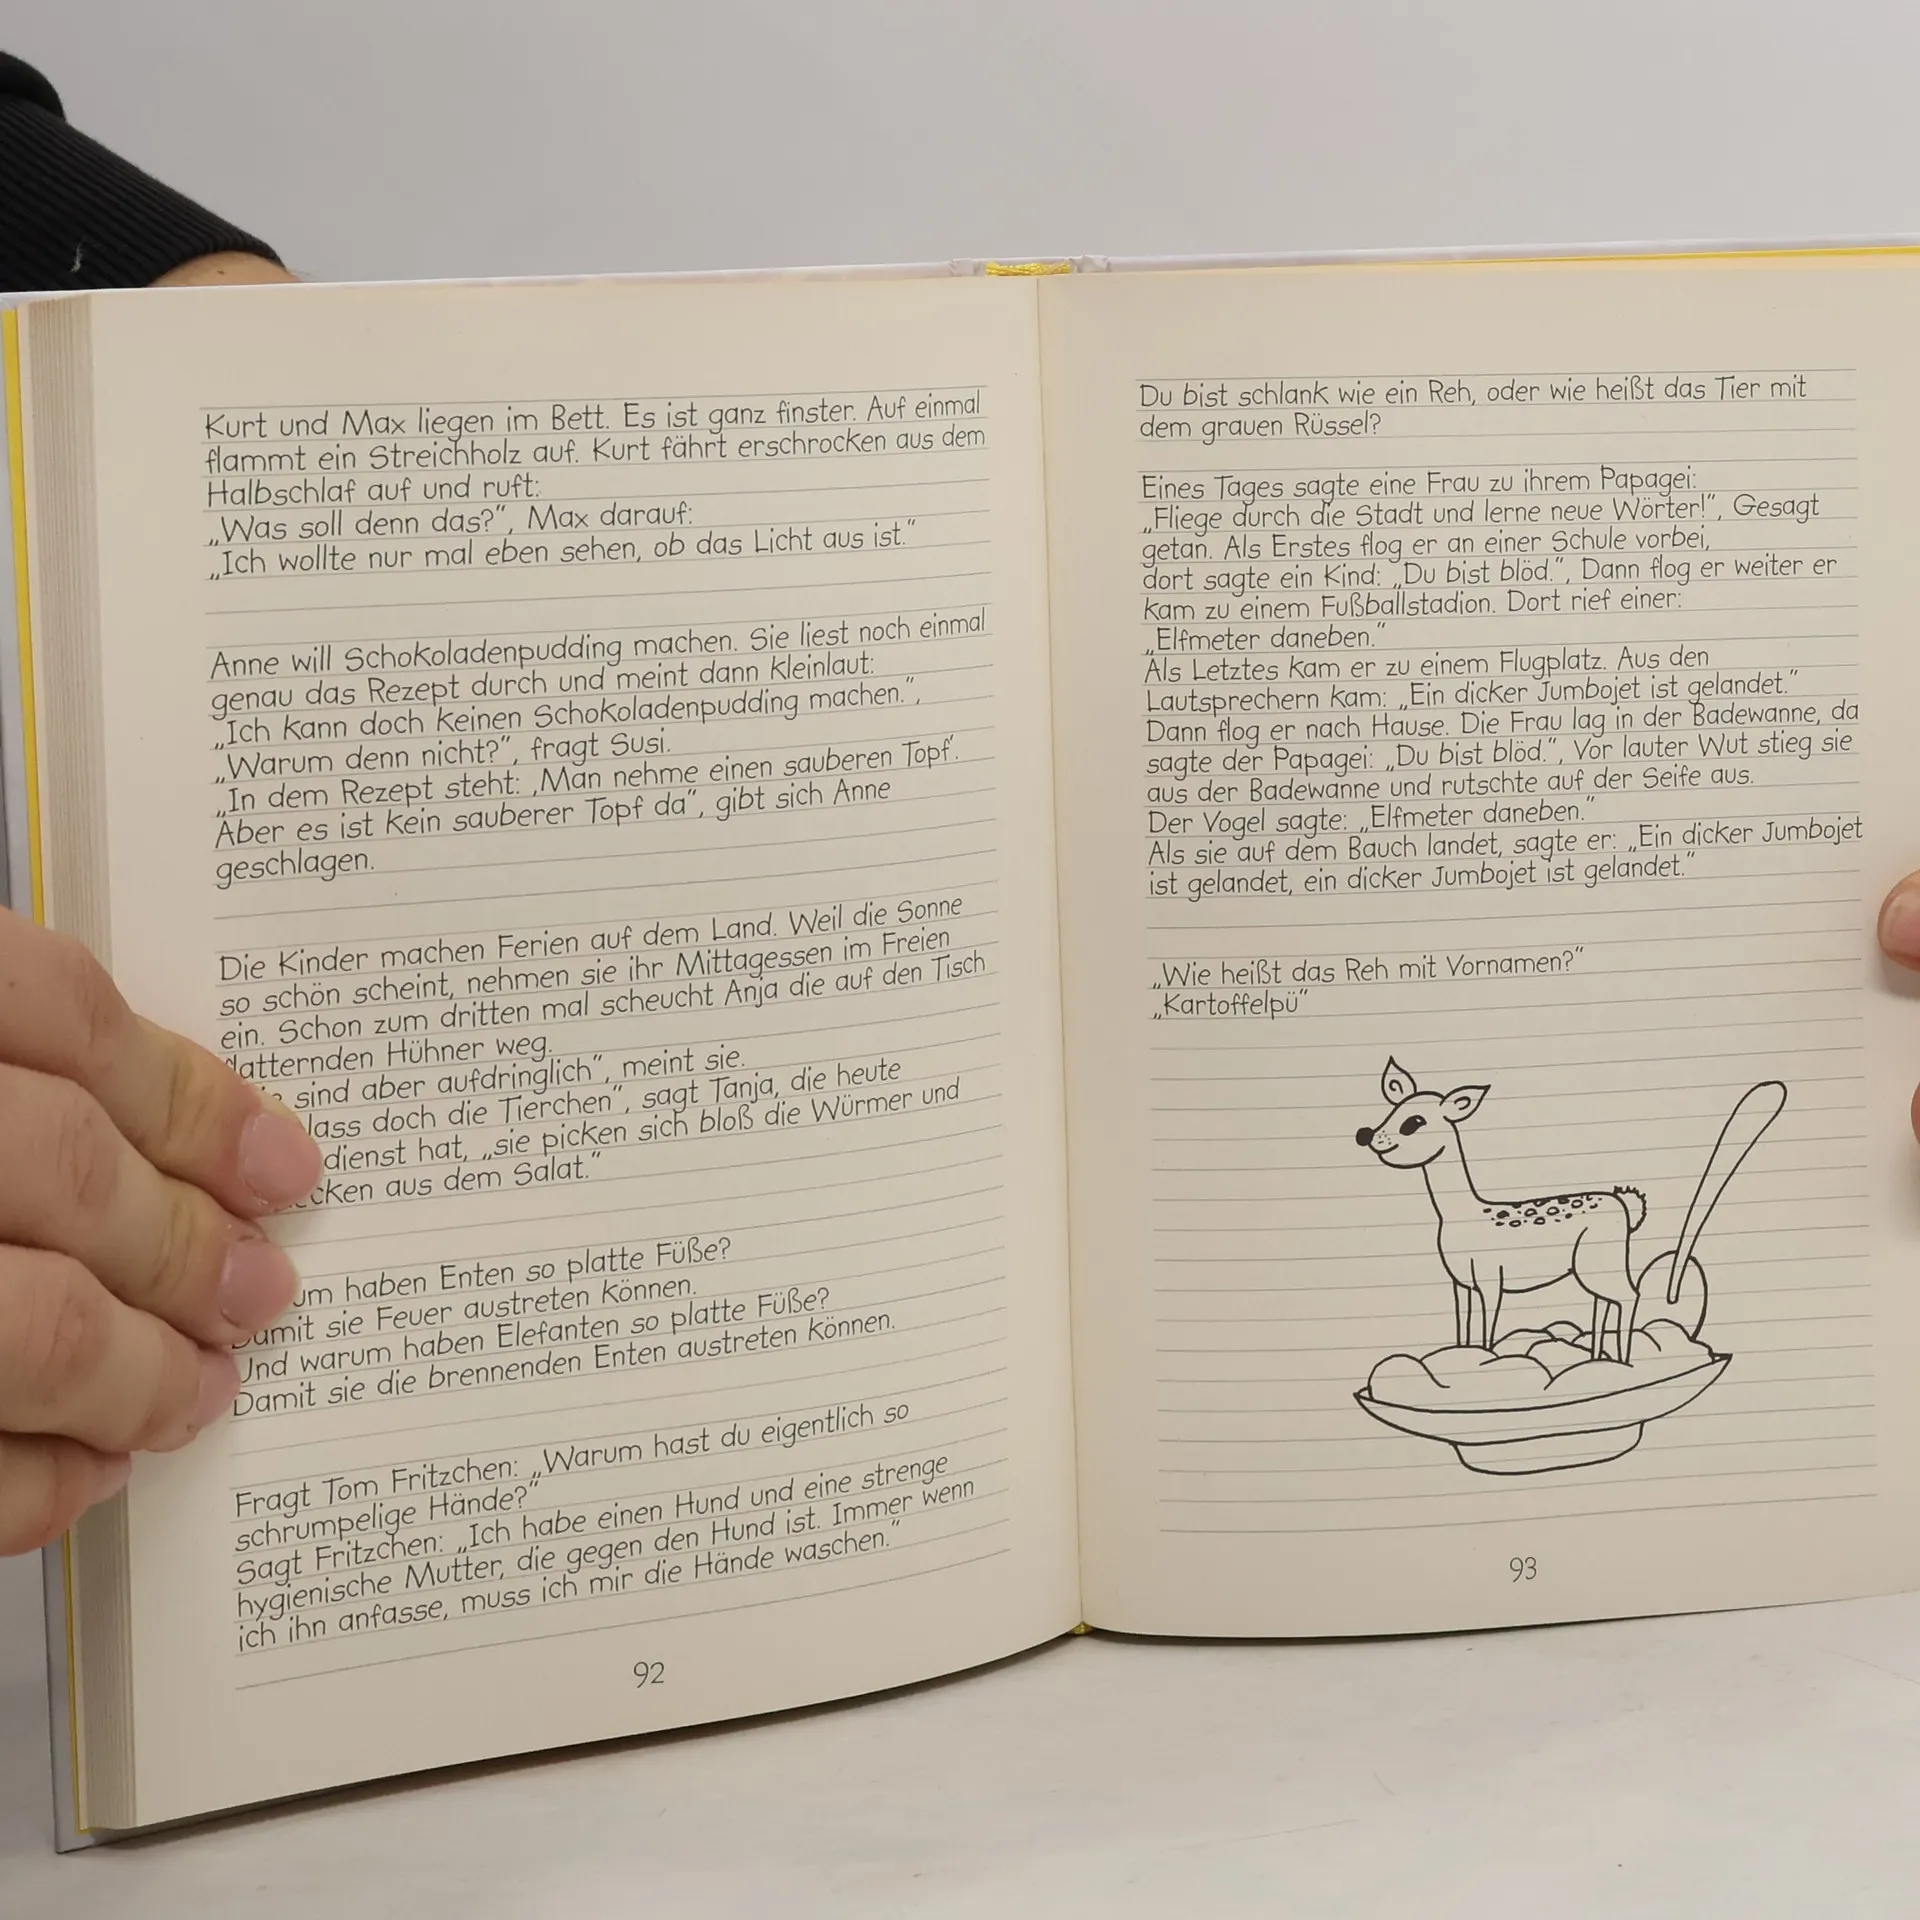 Kurt und Max liegen im Bett. Es ist ganz finster. Auf einmal
flammt ein Streichholz auf. Kurt fährt erschrocken aus dem
Halbschlaf auf und ruft:
„Was soll denn das?“, Max darauf:
„Ich wollte nur mal eben sehen, ob das Licht aus ist.“
Anne will Schokoladenpudding machen. Sie liest noch einmal
genau das Rezept durch und meint dann kleinlaut:
„Ich kann doch keinen Schokoladenpudding machen.“,
„Warum denn nicht?“, fragt Susi.
„In dem Rezept steht: ‚Man nehme einen sauberen Topf‘.
Aber es ist kein sauberer Topf da“, gibt sich Anne
geschlagen.
Die Kinder machen Ferien auf dem Land. Weil die Sonne
so schön scheint, nehmen sie ihr Mittagessen im Freien
ein. Schon zum dritten mal scheucht Anja die auf den Tisch
flatternden Hühner weg.
sind aber aufdringlich“, meint sie.
lass doch die Tierchen“, sagt Tanja, die heute
dienst hat, „sie picken sich bloß die Würmer und
cken aus dem Salat.“
um haben Enten so platte Füße?
Damit sie Feuer austreten können.
Und warum haben Elefanten so platte Füße?
Damit sie die brennenden Enten austreten können.
Fragt Tom Fritzchen: „Warum hast du eigentlich so
schrumpelige Hände?“
Sagt Fritzchen: „Ich habe einen Hund und eine strenge
hygienische Mutter, die gegen den Hund ist. Immer wenn
ich ihn anfasse, muss ich mir die Hände waschen.“
92
Du bist schlank wie ein Reh, oder wie heißt das Tier mit
dem grauen Rüssel?
Eines Tages sagte eine Frau zu ihrem Papagei:
„Fliege durch die Stadt und lerne neue Wörter!“, Gesagt
getan. Als Erstes flog er an einer Schule vorbei,
dort sagte ein Kind: „Du bist blöd.“, Dann flog er weiter er
kam zu einem Fußballstadion. Dort rief einer:
„Elfmeter daneben.“
Als Letztes kam er zu einem Flugplatz. Aus den
Lautsprechern kam: „Ein dicker Jumbojet ist gelandet.“
Dann flog er nach Hause. Die Frau lag in der Badewanne, da
sagte der Papagei: „Du bist blöd.“, Vor lauter Wut stieg sie
aus der Badewanne und rutschte auf der Seife aus.
Der Vogel sagte: „Elfmeter daneben.“
Als sie auf dem Bauch landet, sagte er: „Ein dicker Jumbojet
ist gelandet, ein dicker Jumbojet ist gelandet.“
„Wie heißt das Reh mit Vornamen?“
„Kartoffelpü“
93